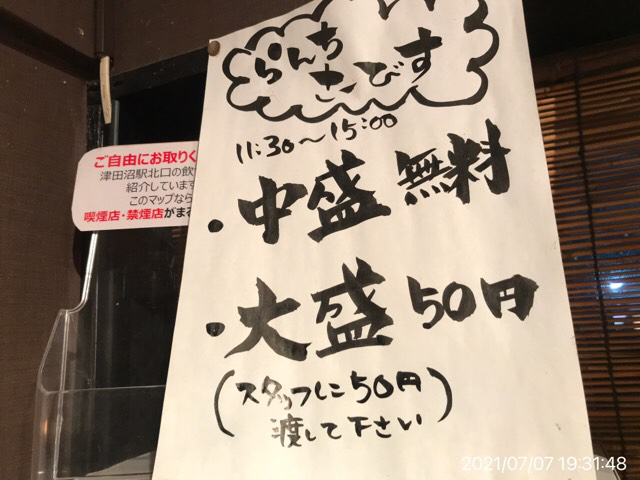 らんち
さーびす
11:30〜15:00
・中盛 無料
・大盛 50円
(スタッフに50円
渡して下さい)
ご自由にお取りく
津田沼駅北口の飲
紹介しています
このマップなら
喫煙店・禁煙店がまる
2021/07/07 19:31:48